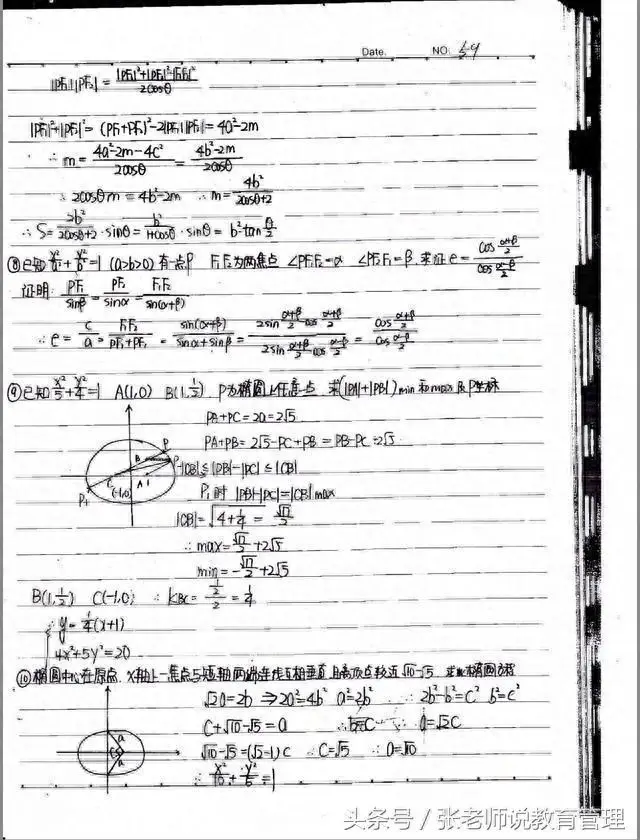 Date. NO.
|PF₁||PF₂| = (|PF₁|²+|PF₂|²-|F₁F₂|²)/(2cosθ)
|PF₁|²+|PF₂|² = (PF₁+PF₂)²-2|PF₁||PF₂| = 4a²-2m
∴ m = (4a²-2m-4c²)/(2cosθ) = (4b²-2m)/(2cosθ)
∴ 2cosθm = 4b²-2m ∴ m = 4b²/(2cosθ+2)
∴ S = 2b²/(2cosθ+2) · sinθ = b²/(1+cosθ) · sinθ = b²tan θ/2
⑧已知 x²/a² + y²/b² = 1 (a>b>0) 有一点P F₁F₂为两焦点 ∠PF₁F₂=α ∠PF₂F₁=β, 求证 e = cos (α+β)/2 / cos (α-β)/2
证明: PF₁/sinβ = PF₂/sinα = F₁F₂/sin(α+β)
∴ e = c/a = F₁F₂/(PF₁+PF₂) = sin(α+β)/(sinα+sinβ) = (2sin (α+β)/2 cos (α+β)/2)/(2sin (α+β)/2 cos (α-β)/2) = cos (α+β)/2 / cos (α-β)/2
⑨已知 x²/5 + y²/4 = 1 A(1,0) B(1,1/2) P为椭圆上任意点 求(|PA|+|PB|)min和max及P坐标
PA+PC=2a=2√5
PA+PB = 2√5-PC+PB = PB-PC+2√5
P
B
P
C
A
(-1,0)
P₁
-|CB| ≤ |PB|-|PC| ≤ |CB|
P₁时 |PB|-|PC|=|CB| max
|CB| = √(4+1/4) = √17/2
∴ max = √17/2 + 2√5
min = -√17/2 + 2√5
B(1,1/2) C(-1,0) ∴ KBC = (1/2)/2 = 1/4
∴ y = 1/4(x+1)
4x²+5y²=20
⑩椭圆中心在原点, x轴上一焦点与短轴两端连线互相垂直 且离顶点较近√10-√5, 求椭圆方程
√2a=2b ⇒ 2a²=4b² a²=2b² ∴ 2b²-b²=c² b²=c²
C+√10-√5=a ∴ b=C ∴ a=√2C
√10-√5=(√2-1)c ∴ C=√5 ∴ a=√10
a
C
a
∴ x²/10 + y²/5 = 1
头条号 / 张老师说教育管理